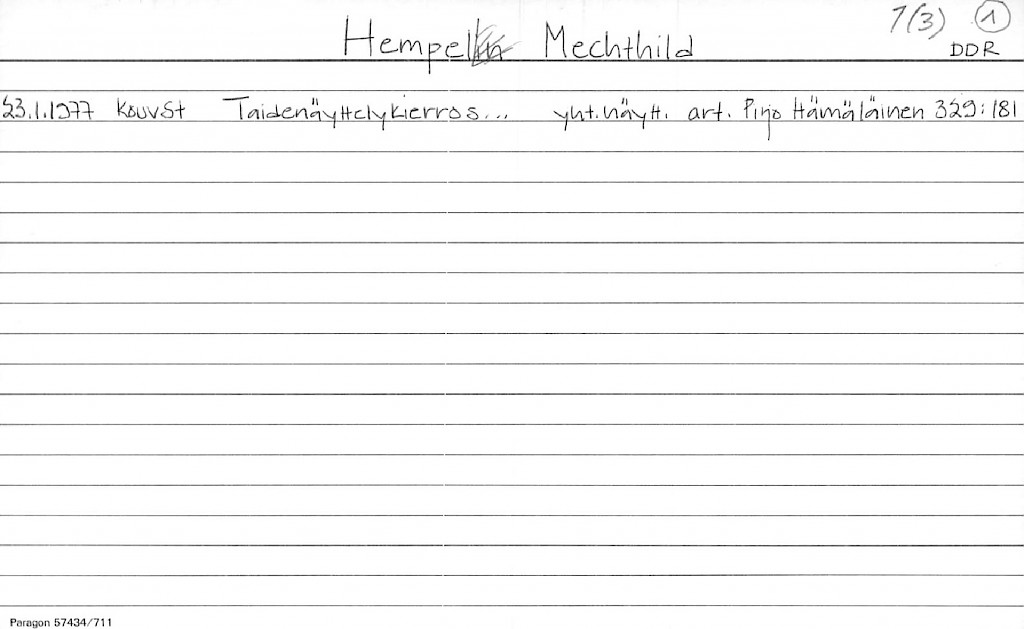 7(3) 1
Hempel Mechthild DDR
23.1.1977 KouvSt Taidenäyttelykierros... yht.näytt. art. Pirjo Hämäläinen 329:181
Paragon 57434/711